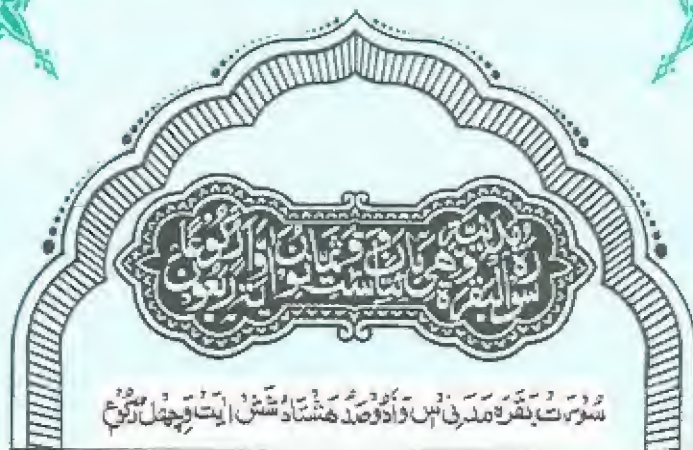 سورة البقرة مدنية وهي مائتان وست وثمانون اية واربعون ركوعا
سُورَت بَقَرَه مَدَنِی اس وَ ادُوصَد هَشتَاد شَشْ ایَت وَچِهل رُکُوع